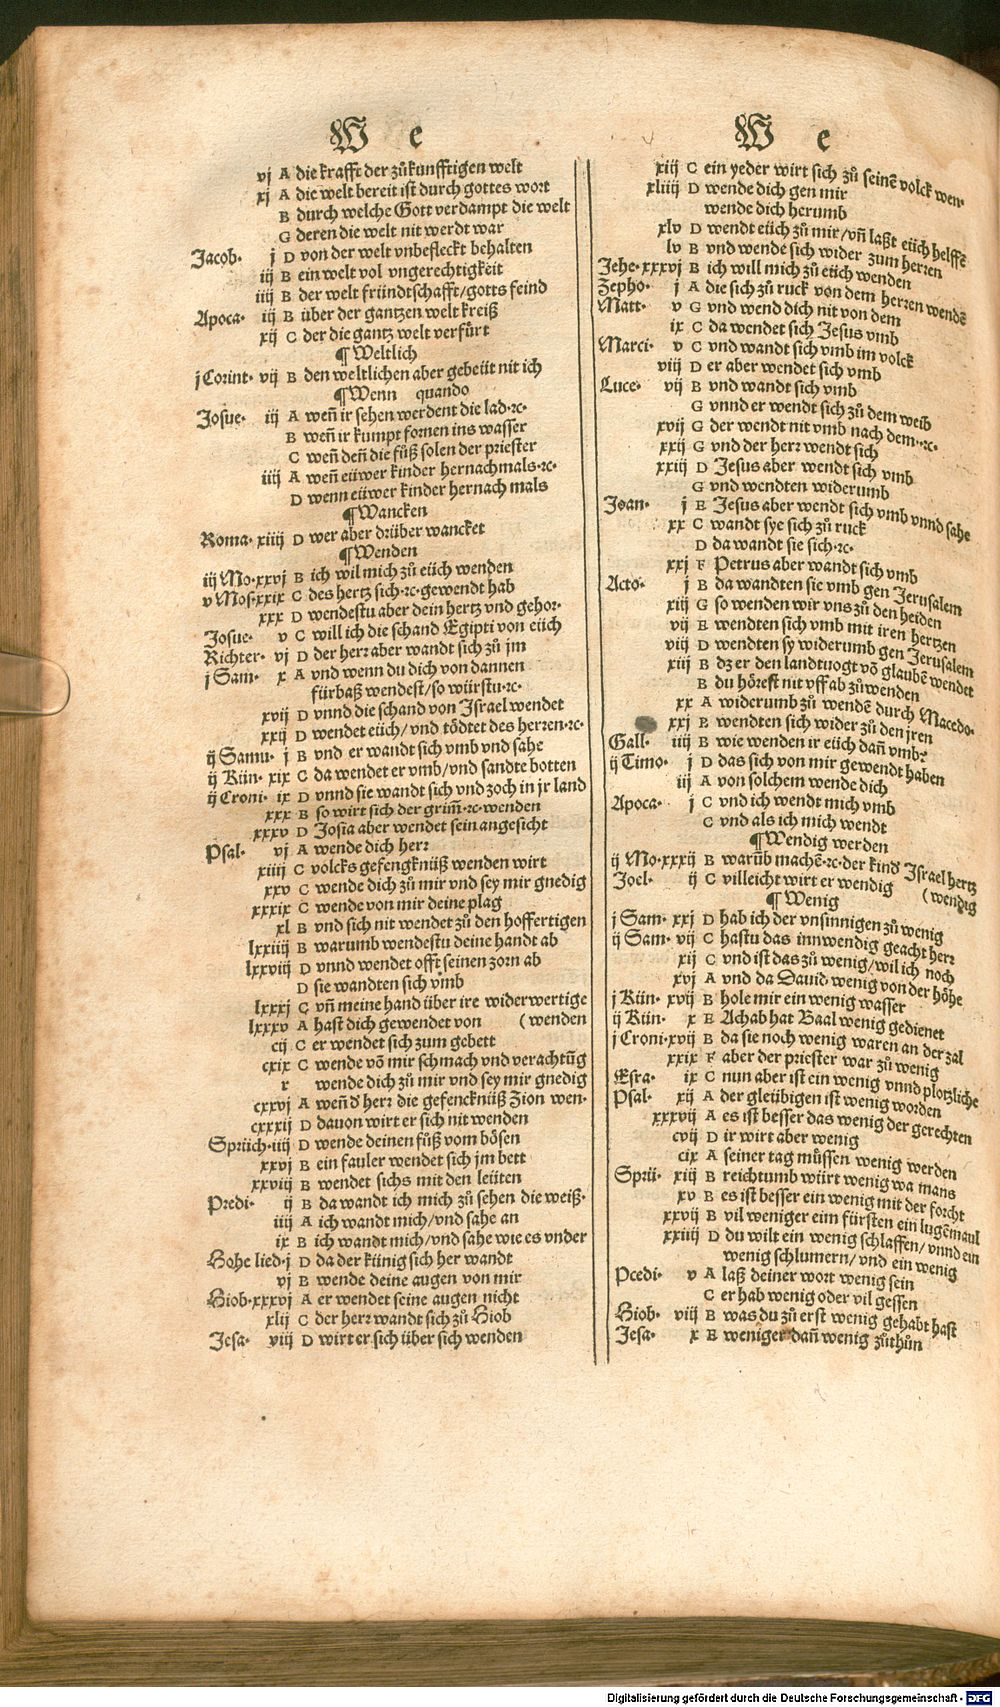 W e
vj A die krafft der zůkunfftigen welt
xj A die welt bereit ist durch gottes wort
B durch welche Gott verdampt die welt
G deren die welt nit werdt war
Jacob· j D von der welt vnbefleckt behalten
iij B ein welt vol vngerechtigkeit
iiij B der welt fründtschafft/gotts feind
Apoca· iij B über der gantzen welt kreiß
xij C der die gantz welt verfürt
¶Weltlich
j Corint· vij B den weltlichen aber gebeüt nit ich
¶Wenn quando
Josue· iij A weñ ir sehen werdent die lad·⁊c·
B weñ ir kumpt fornen ins wasser
C weñ deñ die füß solen der priester
iiij A weñ eüwer kinder hernachmals·⁊c·
D wenn eüwer kinder hernach mals
¶Wancken
Roma· xiiij D wer aber drüber wancket
¶Wenden
iij Mo·xxvj B ich wil mich zů eüch wenden
v Mos·xxix C des hertz sich·⁊c·gewendt hab
xxx D wendestu aber dein hertz vnd gehor·
Josue· v C will ich die schand Egipti von eüch
Richter· vj D der herr aber wandt sich zů jm
j Sam· x A vnd wenn du dich von dannen
fürbaß wendest/so würstu·⁊c·
xvij D vnnd die schand von Israel wendet
xxij D wendet eüch/vnd tödtet des herren·⁊c·
ij Samu· j B vnd er wandt sich vmb vnd sahe
ij Kün· xix C da wendet er vmb/vnd sandte botten
ij Croni· ix D vnnd sie wandt sich vnd zoch in jr land
xxx B so wirt sich der grim̃·⁊c·wenden
xxxv D Josia aber wendet sein angesicht
Psal· vj A wende dich herr
xiiij C volcks gefengknüß wenden wirt
xxv C wende dich zů mir vnd sey mir gnedig
xxxix C wende von mir deine plag
xl B vnd sich nit wendet zů den hoffertigen
lxxiiij B warumb wendestu deine handt ab
lxxviij D vnnd wendet offt seinen zorn ab
D sie wandten sich vmb
lxxxj C vñ meine hand über ire widerwertige
lxxxv A hast dich gewendet von (wenden
cij C er wendet sich zum gebett
cxix C wende võ mir schmach vnd verachtũg
r wende dich zů mir vnd sey mir gnedig
cxxvj A weñ d' herr die gefencknüß Zion wen·
cxxxij D dauon wirt er sich nit wenden
Sprüch·iiij D wende deinen füß vom bösen
xxvj B ein fauler wendet sich jm bett
xxviij B wendet sichs mit den leüten
Predi· ij B da wandt ich mich zů sehen die weiß·
iiij A ich wandt mich/vnd sahe an
ix B ich wandt mich/vnd sahe wie es vnder
Hohe lied·j D da der künig sich her wandt
vj B wende deine augen von mir
Hiob·xxxvj A er wendet seine augen nicht
xlij C der herr wandt sich zů Hiob
Jesa· viij D wirt er sich über sich wenden
W e
xiij C ein yeder wirt sich zů seinẽ volck wen·
xliiij D wende dich gen mir
wende dich herumb
xlv D wendt eüch zů mir/vñ laßt eüch helffẽ
lv B vnd wende sich wider zum herren
Jehe·xxxvj B ich will mich zů eüch wenden
Zepho· j A die sich zů ruck von dem herren wendẽ
Matt· v G vnd wend dich nit von dem
ix C da wendet sich Jesus vmb
Marci· v C vnd wandt sich vmb im volck
viij D er aber wendet sich vmb
Luce· vij B vnd wandt sich vmb
G vnnd er wendt sich zů dem weib
xvij G der wendt nit vmb nach dem·⁊c·
xxij G vnd der herr wendt sich
xxiij D Jesus aber wendt sich vmb
G vnd wendten widerumb
Joan· j E Jesus aber wendt sich vmb vnnd sahe
xx C wandt sye sich zů ruck
D da wandt sie sich·⁊c·
xxj F Petrus aber wandt sich vmb
Acto· j B da wandten sie vmb gen Jerusalem
xiij G so wenden wir vns zů den heiden
vij E wendten sich vmb mit iren hertzen
viij D wendten sy widerumb gen Jerusalem
xiij B dz er den landtuogt võ glaubẽ wendet
B du hörest nit vff ab zůwenden
xx A widerumb zů wendẽ durch Macedo·
xxj B wendten sich wider zů den jren
Gall· iiij B wie wenden ir eüch dañ vmb?
ij Timo· j D das sich von mir gewendt haben
iij A von solchem wende dich
Apoca· j C vnd ich wendt mich vmb
C vnd als ich mich wendt
¶Wendig werden
ij Mo·xxxij B warũb machẽ·⁊c·der kind Israel hertz
Joel· ij C villeicht wirt er wendig (wendig
¶Wenig
j Sam· xxj D hab ich der vnsinnigen zů wenig
ij Sam· vij C hastu das innwendig geacht herr
xij C vnd ist das zů wenig/wil ich noch
xvj A vnd da Dauid wenig von der höhe
j Kün· xvij B hole mir ein wenig wasser
ij Kün· x E Achab hat Baal wenig gedienet
j Croni·xvij B da sie noch wenig waren an der zal
xxix F aber der priester war zů wenig
Esra· ix C nun aber ist ein wenig vnnd plotzliche
Psal· xij A der gleübigen ist wenig worden
xxxvij A es ist besser das wenig der gerechten
cvij D ir wirt aber wenig
cix A seiner tag müssen wenig werden
Sprü· xiij B reichtumb würt wenig wa mans
xv B es ist besser ein wenig mit der forcht
xxvij B vil weniger eim fürsten ein lugẽmaul
xxiiij D du wilt ein wenig schlaffen/vnnd ein
wenig schlumern/vnd ein wenig
Predi· v A laß deiner wort wenig sein
C er hab wenig oder vil gessen
Hiob· viij B was du zů erst wenig gehabt hast
Jesa· x E weniger dañ wenig zůthůn
Digitalisierung gefördert durch die Deutsche Forschungsgemeinschaft - DFG